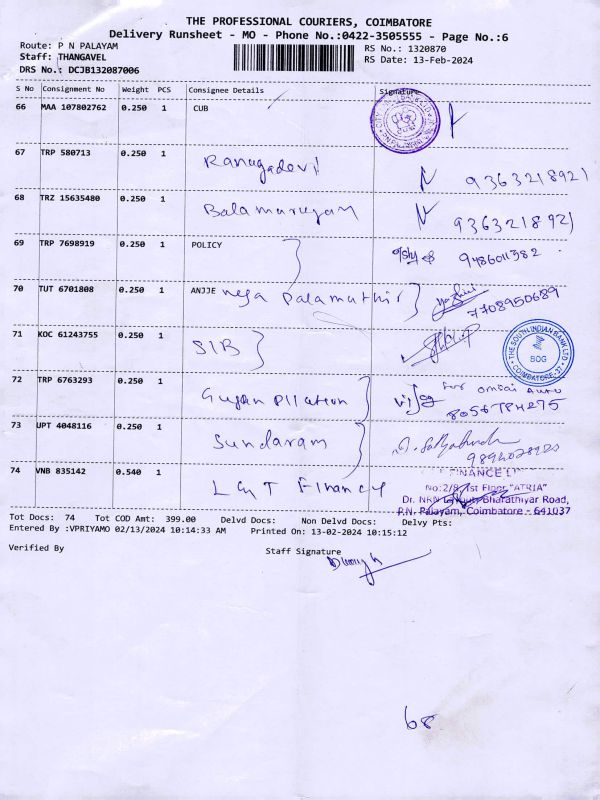 THE PROFESSIONAL COURIERS, COIMBATORE
Delivery Runsheet - MO - Phone No.:0422-3505555 - Page No.:6
Route: P N PALAYAM
RS No.: 1320870
Staff: THANGAVEL
RS Date: 13-Feb-2024
DRS No.: DCJB132087006
S No Consignment No Weight PCS Consignee Details Signature
66 MAA 107802762 0.250 1 CUB
67 TRP 580713 0.250 1 Ranagadevi 9363218921
68 TRZ 15635480 0.250 1 Balamurugan 9363218921
69 TRP 7698919 0.250 1 POLICY
70 TUT 6701808 0.250 1 ANJJE mega Palamuthir 7708950689
71 KOC 61243755 0.250 1 SIB
THE SOUTH INDIAN BANK LTD
BOG
COIMBATORE-37
72 TRP 6763293 0.250 1
73 UPT 4048116 0.250 1 Sundaram
74 VNB 835142 0.540 1 L&T Finance
FINANCE L
No:2/8, 1st Floor, "ATRIA"
Dr. NRN Bharathiyar Road,
P.N. Palayam, Coimbatore - 641037
Tot Docs: 74 Tot COD Amt: 399.00 Delvd Docs: Non Delvd Docs: Delvy Pts:
Entered By :VPRIYAMO 02/13/2024 10:14:33 AM Printed On: 13-02-2024 10:15:12
Verified By Staff Signature
68